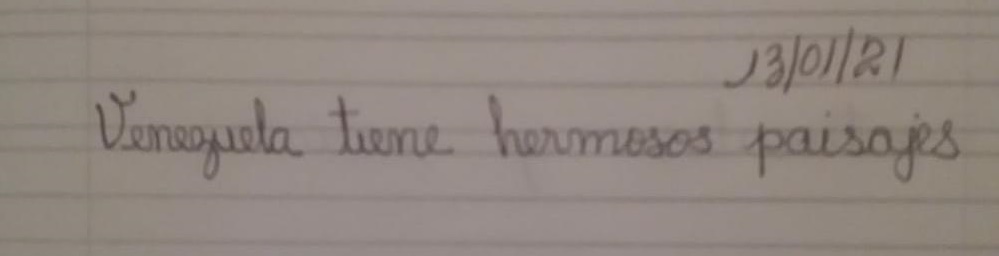 13/01/21
Venezuela tiene hermosos paisajes